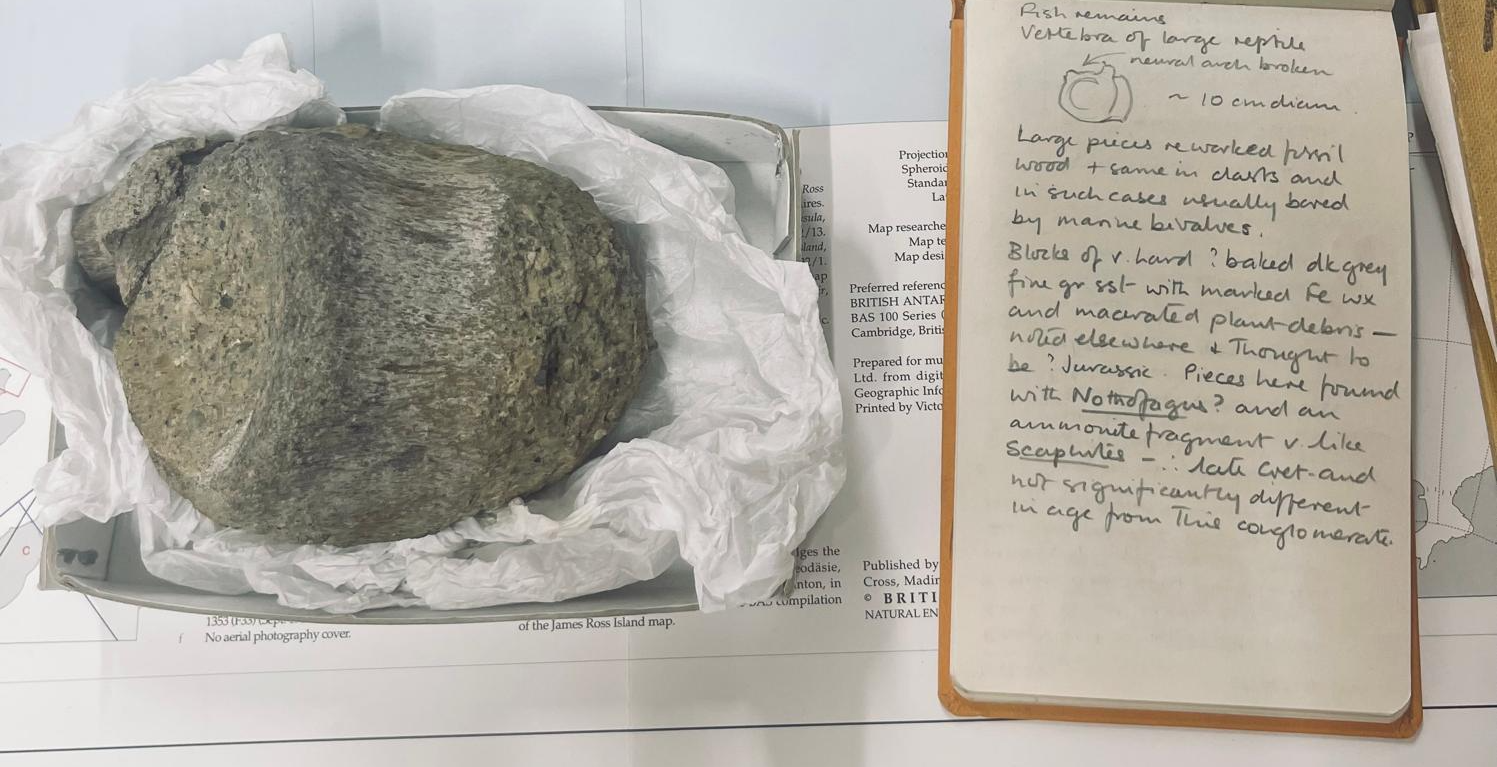 Fish remains
Vertebra of large reptile
neural arch broken
~ 10 cm diam.
Large pieces reworked fossil
wood + same in clasts and
in such cases usually bored
by marine bivalves.
Blocks of v. hard ? baked dk grey
fine gr sst with marked Fe wx
and macerated plant debris —
noted elsewhere & Thought to
be ? Jurassic. Pieces here found
with Nothofagus? and an
ammonite fragment v. like
Scaphites – ∴ late Cret. and
not significantly different
in age from This conglomerate.
Projection
Spheroid
Standa
La
Map researche
Map te
Map desi
Preferred referenc
BRITISH ANTAR
BAS 100 Series (
Cambridge, Britis
Prepared for mu
Ltd. from digit
Geographic Info
Printed by Victo
Published by
Cross, Madin
© BRITI
NATURAL EN
Ross
ires.
sula,
/13.
land,
/1.
ap
c.
lges the
eodäsie,
nton, in
compilation
of the James Ross Island map.
f No aerial photography cover.
C